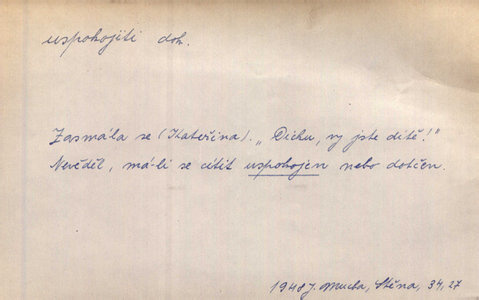 uspokojiti dok.
Zasmála se (Kateřina). „Dicku, vy jste dítě!"
Nevěděl, má-li se cítit uspokojen nebo dotčen.
1948 J. Mucha, Stěna, 34, 27